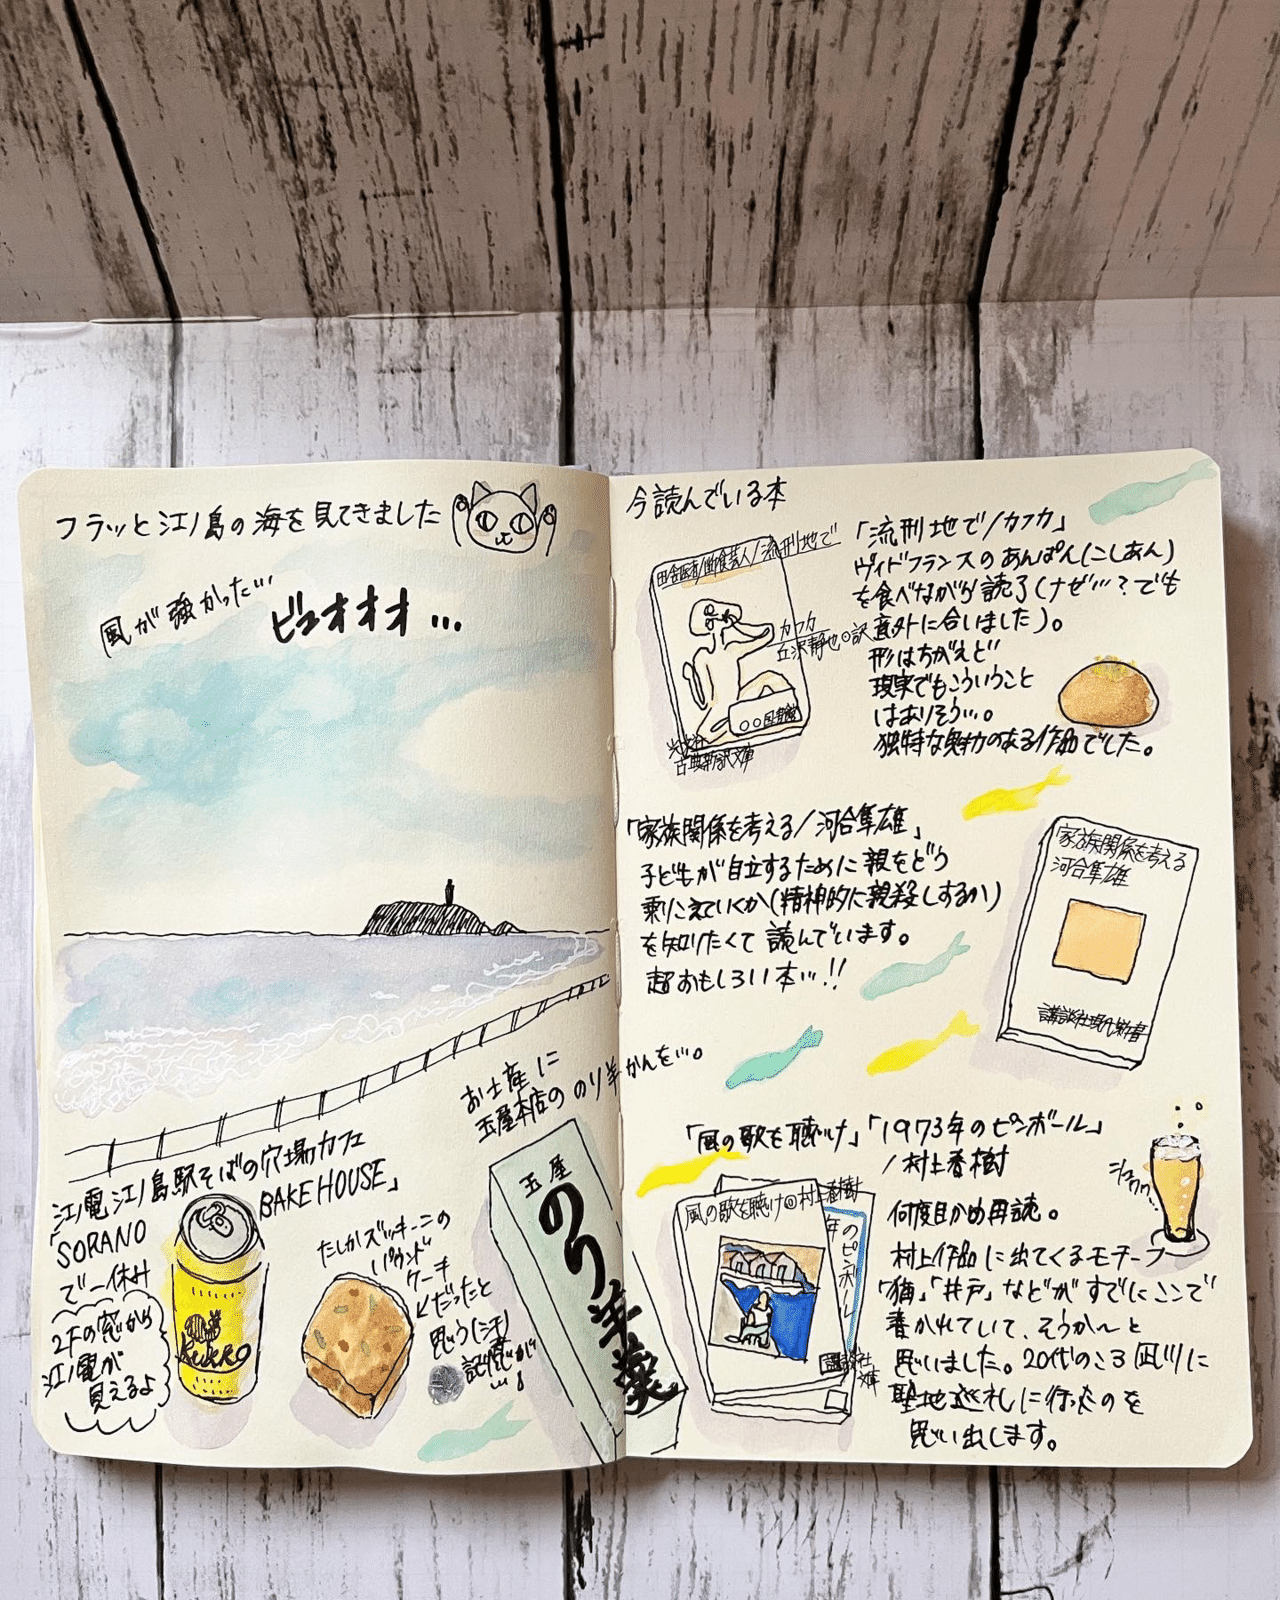 フラッと江ノ島の海を見てきました
風が強かった…
ビュオオオ…
お土産に
玉屋本店ののり羊かんを…。
江ノ電江ノ島駅そばの穴場カフェ
「SORANO
BAKE HOUSE」
で一休み
2Fの窓から
江ノ電が
見えるよ
Kukko
たしかズッキーニの
パウンド
ケーキ
だったと
思う(汗)
記憶が
…
玉屋
のり羊羹
今読んでいる本
田舎医者/断食芸人/流刑地で
カフカ
丘沢静也◎訳
光文社
古典新訳文庫
「流刑地で/カフカ」
ヴィドフランスのあんぱん(こしあん)
を食べながら読了(ナゼ…?でも
意外に合いました)。
形はちがえど
現実でもこういうこと
はありそう…。
独特な魅力のある作品でした。
「家族関係を考える/河合隼雄」
子どもが自立するために親をどう
乗りこえていくか(精神的に親殺しするか)
を知りたくて読んでいます。
超おもしろい本…!!
家族関係を考える
河合隼雄
講談社現代新書
「風の歌を聴け」「1973年のピンボール」
/村上春樹
風の歌を聴け◎村上春樹
年のピンボール
講談社
文庫
シュワワ…
何度目かの再読。
村上作品に出てくるモチーフ
「猫」「井戸」などがすでにここで
書かれていて、そうか〜と
思いました。20代のころ夙川に
聖地巡礼に行ったのを
思い出します。